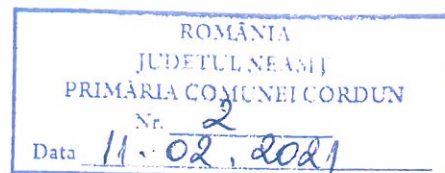 ROMÂNIA
JUDEŢUL NEAMŢ
PRIMĂRIA COMUNEI CORDUN
Nr. 2
Data 11.02.2021